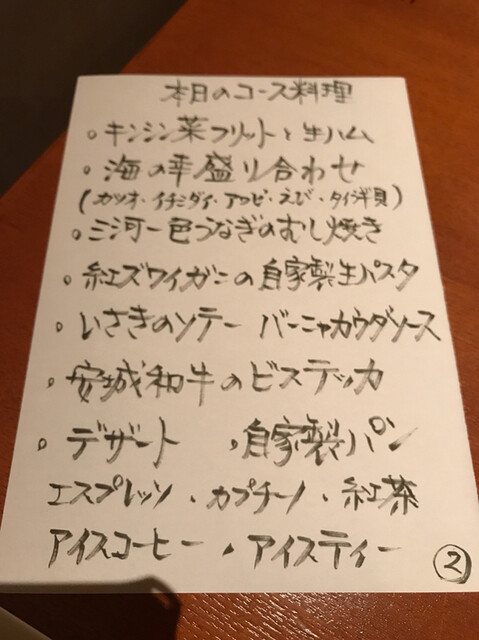 本日のコース料理
・キンシン菜フリットと生ハム
・海の幸盛り合わせ
(カツオ・イチミダイ・アワビ・えび・タイラギ貝)
・三河一色うなぎのむし焼き
・紅ズワイガニの自家製生パスタ
・いさきのソテー バーニャカウダソース
・安城和牛のビステッカ
・デザート ・自家製パン
エスプレッソ・カプチーノ・紅茶
アイスコーヒー・アイスティー
②